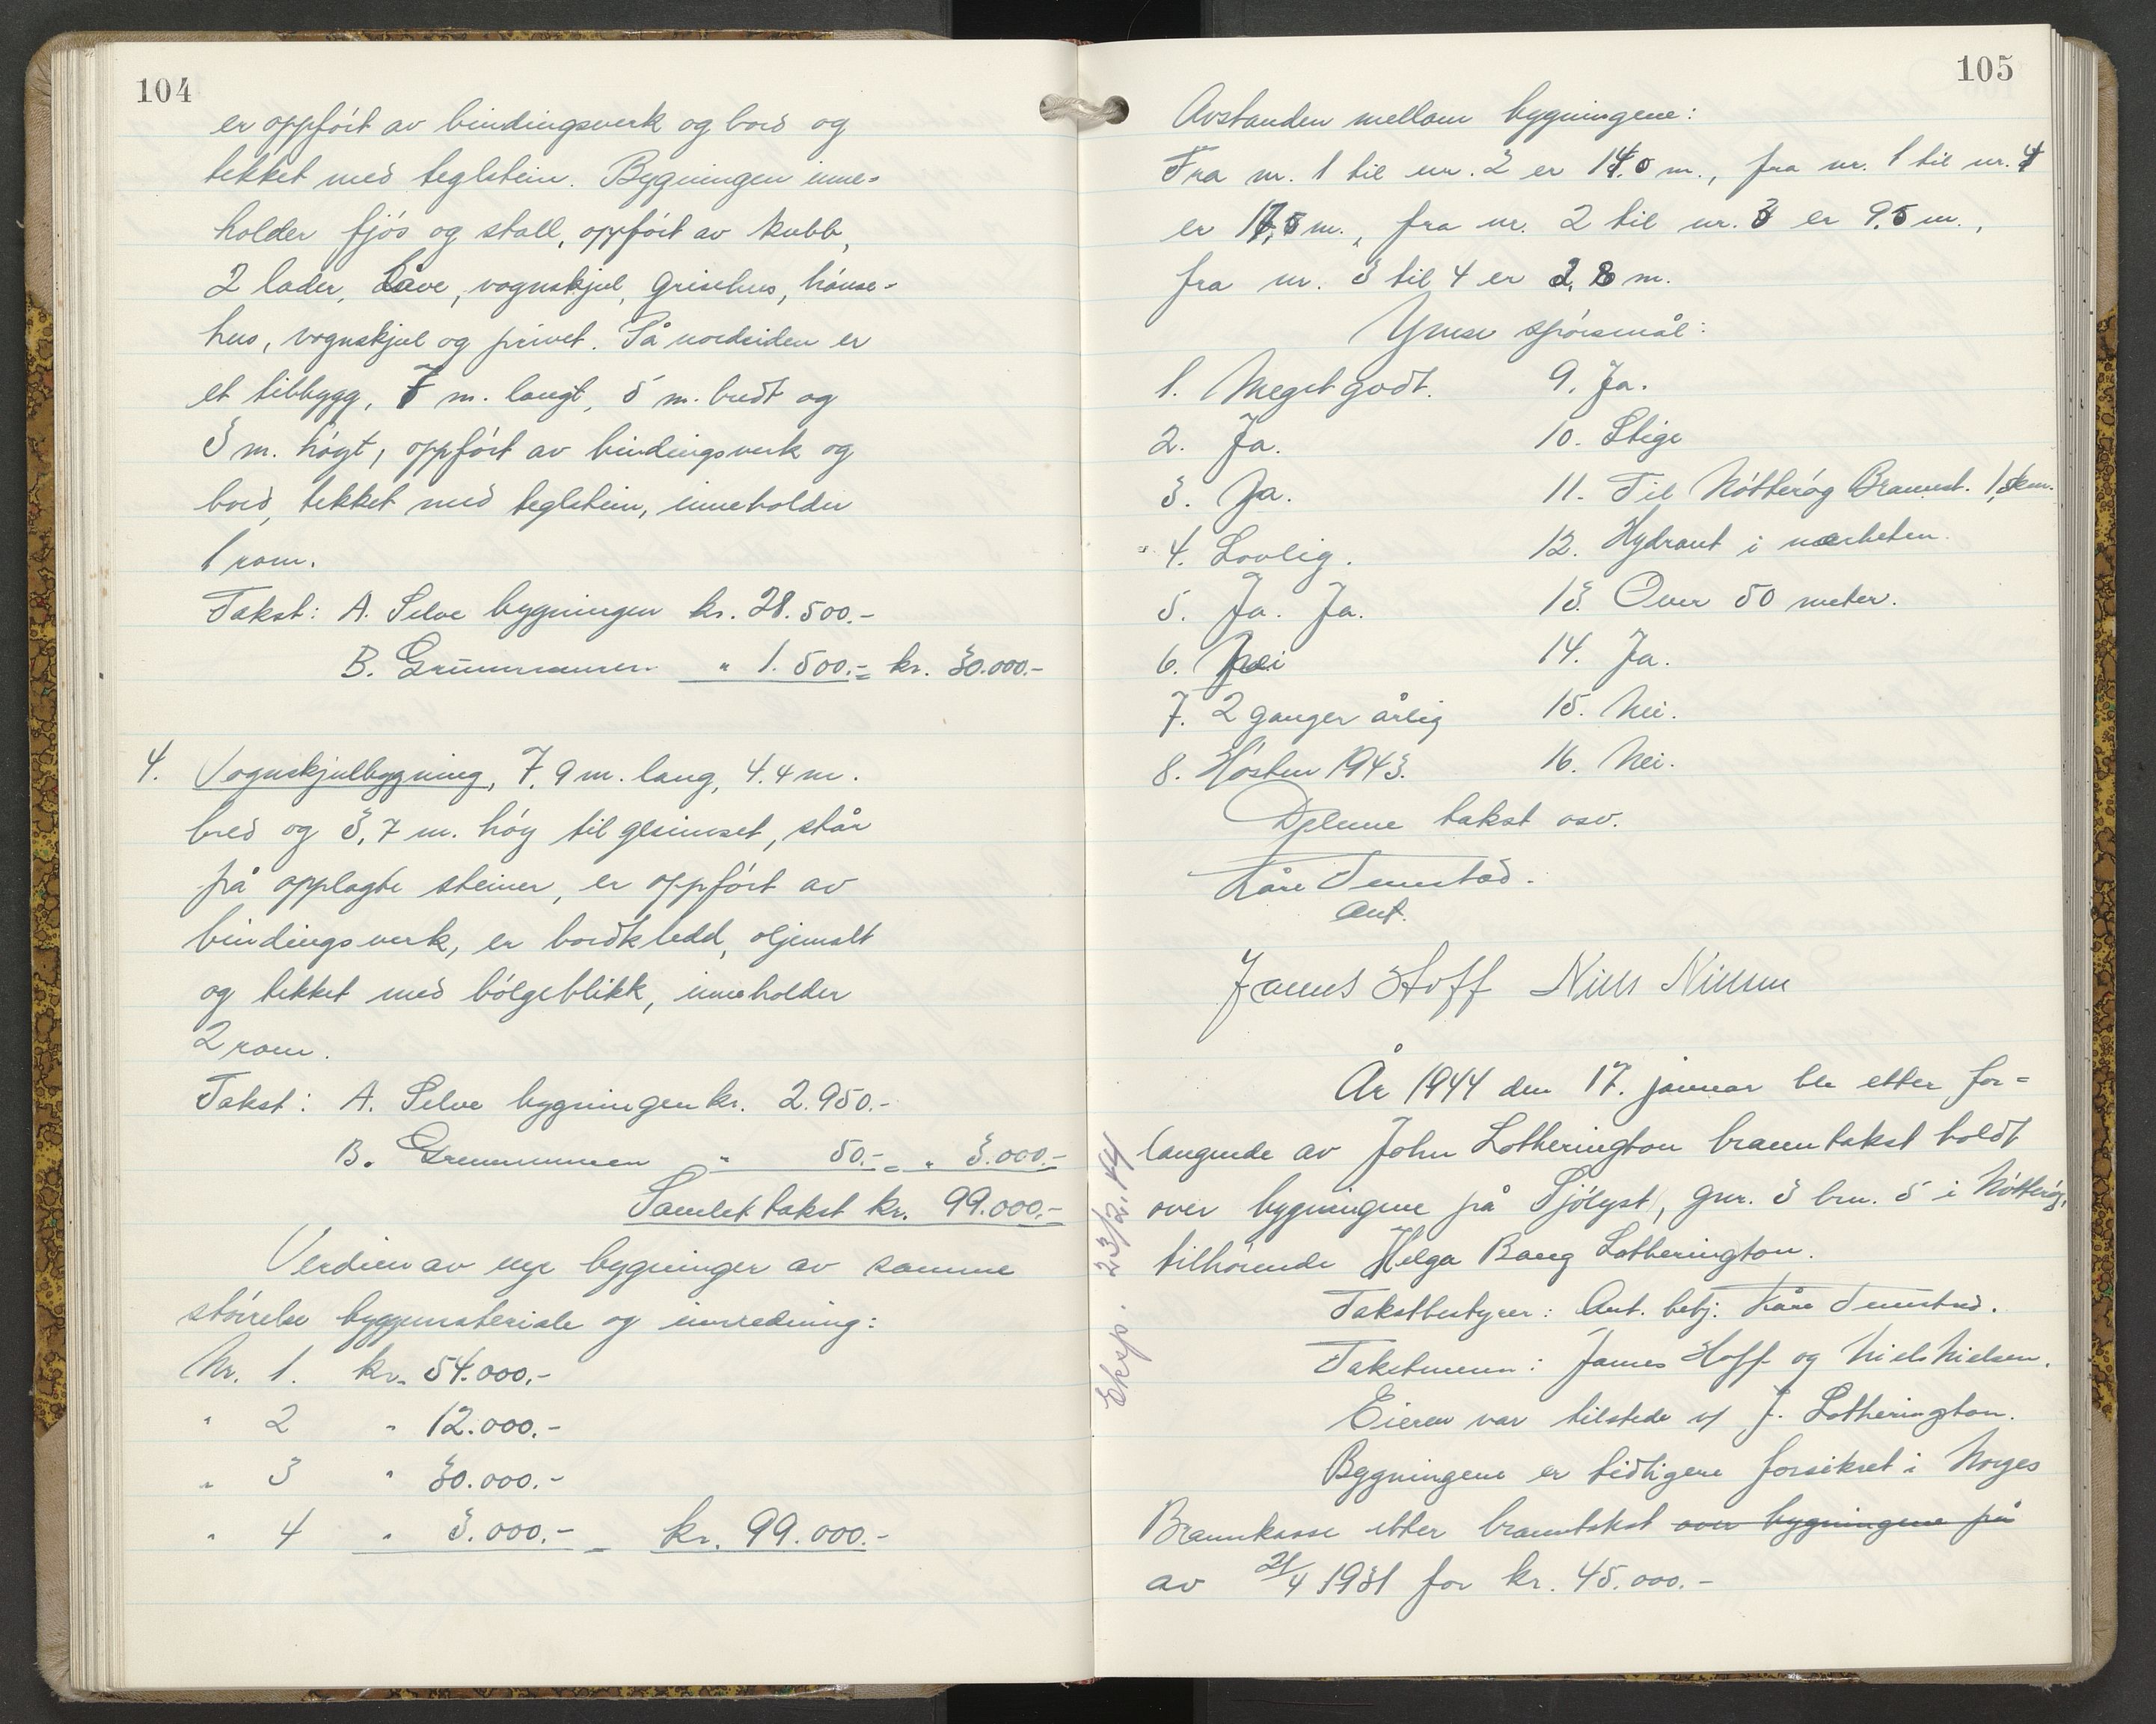 104
er oppført av bindingsverk og bord og
tekket med teglstein. Bygningen inne=
holder fjøs og stall, oppført av kubb,
2 lader, låve, vognskjul, grisehus, hønse=
hus, vognskjul og privet. På nordsiden er
et tilbygg, 7 m. langt, 5 m. bredt og
3 m. høgt, oppført av bindingsverk og
bord, tekket med teglstein, inneholder
1 rom.
Takst: A. Selve bygningen kr. 28.500.-
B. Grunnmuren " 1.500.- = kr. 30.000.-
4. Vognskjulbygning, 7.9 m. lang, 4.4 m.
bred og 3,7 m. høg til gesimset, står
på opplagte steiner, er oppført av
bindingsverk, er bordkledd, oljemalt
og tekket med bølgeblikk, inneholder
2 rom.
Takst: A. Selve bygningen kr. 2.950.-
B. Grunnmuren " 50.- = " 3.000.-
Samlet takst kr. 99.000.-
Verdien av nye bygninger av samme
størrelse byggemateriale og innredning:
Nr. 1. kr. 54.000.-
" 2 " 12.000.-
" 3 " 30.000.-
" 4 " 3.000.- = kr. 99.000.-
105
Avstanden mellom bygningene:
Fra nr. 1 til nr. 2 er 14.0 m., fra nr. 1 til nr. 4
er 17,5 m., fra nr. 2 til nr. 3 er 9.5 m.,
fra nr. 3 til 4 er 2,8 m.
Ymse spørsmål:
1. Meget godt. 9. Ja.
2. Ja. 10. Stige
3. Ja. 11. Til Nøtterøy Brannst. 1,5 km.
4. Lovlig. 12. Hydrant i nærheten.
5. Ja. Ja. 13. Over 50 meter.
6. Nei 14. Ja.
7. 2 ganger årlig 15. Nei.
8. Høsten 1943. 16. Nei.
Denne takst osv.
Kåre Tennstad.
Ant.
James Hoff Niels Nielsen
År 1944 den 17. januar ble etter for=
langende av John Lotherington branntakst holdt
over bygningene på Sjølyst, gnr. 3 bnr. 5 i Nøtterøy,
tilhørende Helga Bang Lotherington.
Takstbestyrer: Ant. betj. Kåre Tennstad.
Takstmenn: James Hoff og Niels Nielsen.
Eieren var tilstede v/ J. Lotherington.
Bygningene er tidligere forsikret i Norges
Brannkasse etter branntakst over bygningene på
av 21/4 1931 for kr. 45.000.-
Eksp. 23/2.44